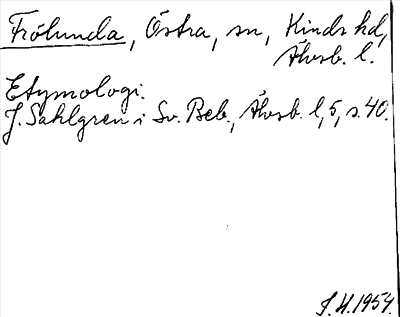 Frölunda, Östra, sn, Kinds hd,
Älvsb. l.
Etymologi.
J. Sahlgren i Sv. Beb., Älvsb. l, 5, s. 40.
S.H. 1954.